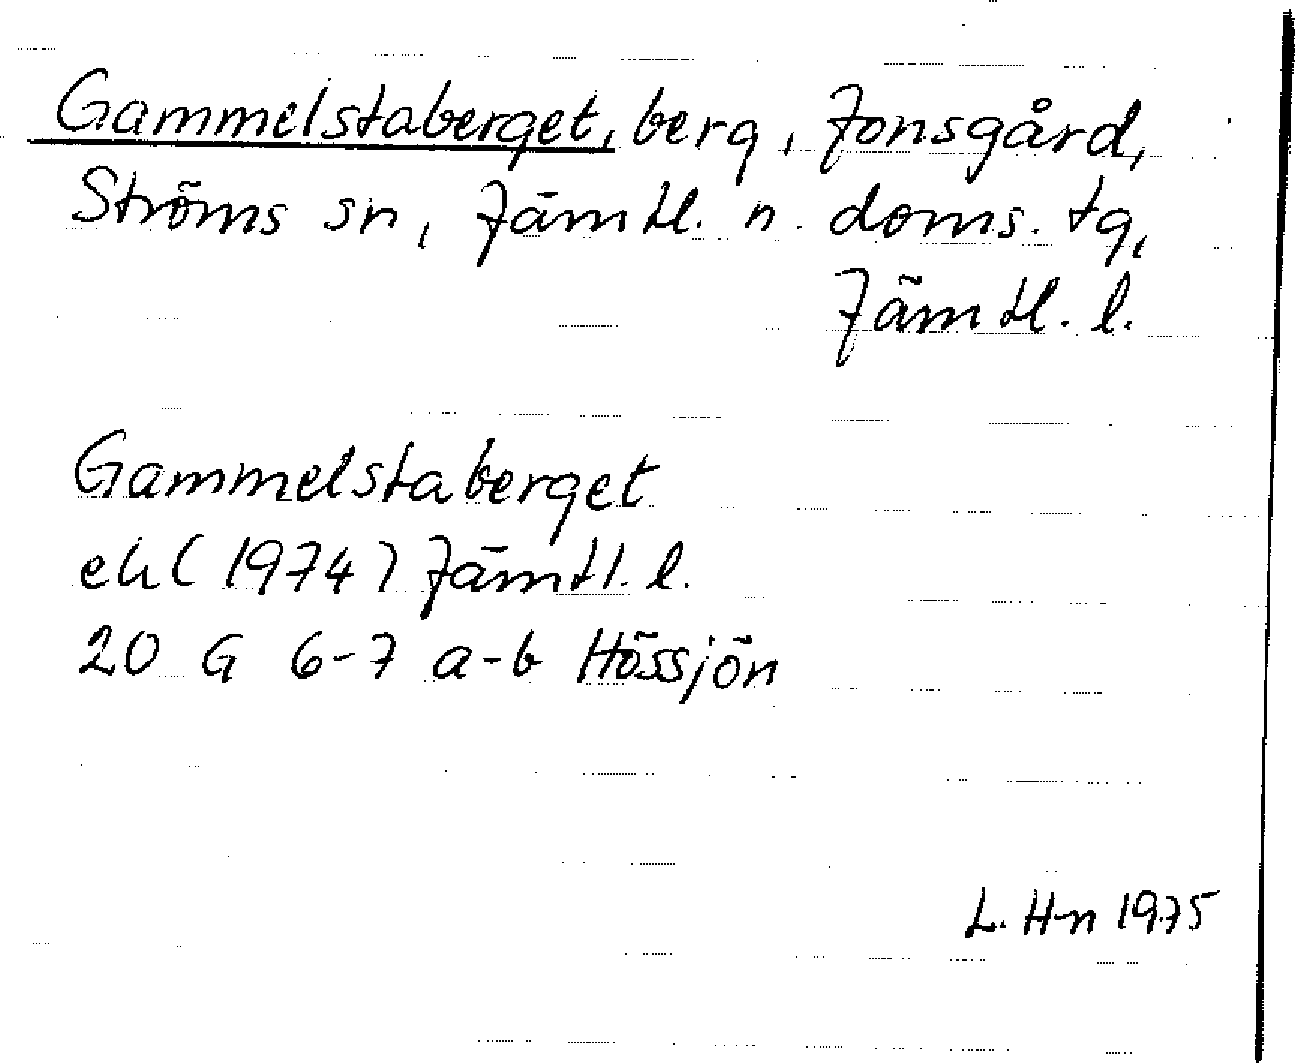 Gammelstaberget, berg, Jonsgård,
Ströms sn, Jämtl. n. doms. tg,
Jämtl. l.
Gammelstaberget
ek (1974) Jämtl. l.
20 G 6-7 a-b Hössjön
L. H-n 1975